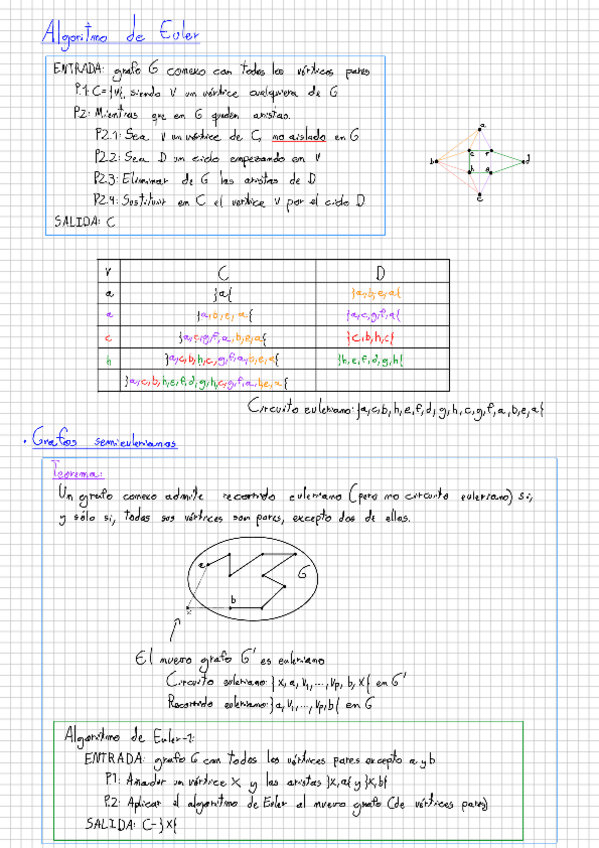 Algoritmo de Euler
ENTRADA: grafo G conexo con todos los vértices pares
P.1: C=}v{, siendo V un vértice cualquiera de G
P.2: Mientras que en G queden aristas.
P.2.1: Sea V un vértice de C, no aislado en G
P.2.2: Sea D un ciclo empezando en V
P.2.3: Eliminar de G las aristas de D
P.2.4: Sustituir en C el vértice V por el ciclo D
SALIDA: C
a
b c f d
h g
e
V C D
a }a{ }a,b,e,a{
a }a,b,e,a{ }a,c,g,f,a{
c }a,c,g,f,a,b,e,a{ }c,b,h,c{
h }a,c,b,h,c,g,f,a,b,e,a{ }h,e,f,d,g,h{
}a,c,b,h,e,f,d,g,h,c,g,f,a,b,e,a{
Circuito euleriano: }a,c,b,h,e,f,d,g,h,c,g,f,a,b,e,a{
· Grafos semieulerianos
Teorema:
Un grafo conexo admite recorrido euleriano (pero no circuito euleriano) si,
y sólo si, todas sus vértices son pares, excepto dos de ellas.
a
G
b
x
El nuevo grafo G' es euleriano
Circuito euleriano: }x, a, v₁, ..., vp, b, x{ en G'
Recorrido euleriano: }a, v₁, ..., vp, b{ en G
Algoritmo de Euler-1:
ENTRADA: grafo G con todos los vértices pares excepto a y b
P.1: Añadir un vértice X y las aristas }x,a{ y }x,b{
P.2: Aplicar el algoritmo de Euler al nuevo grafo (de vértices pares)
SALIDA: C-}x{